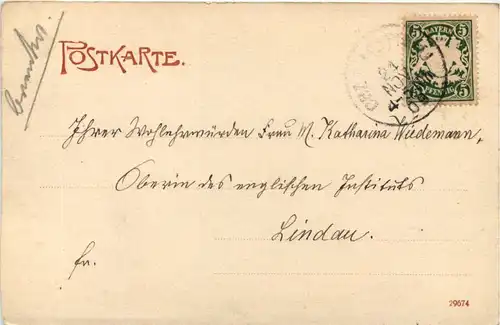 POSTKARTE.
5 BAYERN 5
5 PFENNIG 5
24
NOV
Ihrer Wohlehrwürden Frau M. Katharina Wiedemann,
Oberin des englischen Instituts
Lindau.
fr.
29674